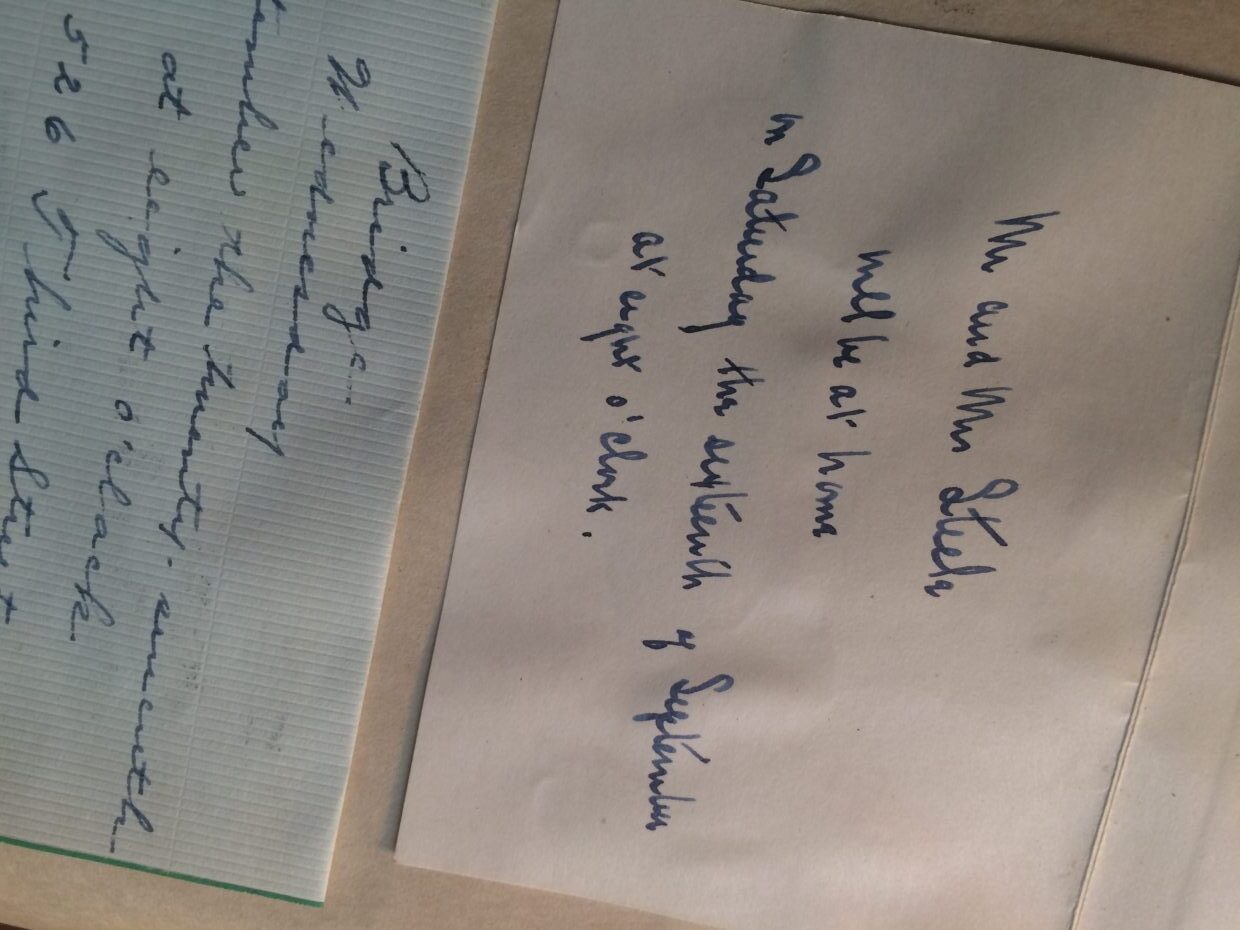 Mr and Mrs Steele
will be at home
on Saturday the sixteenth of September
at eight o'clock.
Bridge..
Wednesday
the twenty-seventh
at eight o'clock.
526 Third Street